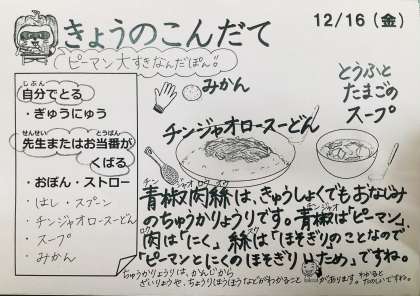 12/16(金)
きょうのこんだて
ピーマン大すきなんだぽん!!
自分でとる
じぶん
・ぎゅうにゅう
先生またはお当番が
せんせい とうばん
くばる
・おぼん・ストロー
・はし・スプーン
・チンジャオロースーどん
・スープ
・みかん
みかん
チンジャオロースーどん
とうふと
たまごの
スープ
チン ジャオ ロー スー
青椒肉絲は、きゅうしょくでもおなじみ
のちゅうかりょうりです。青椒は「ピーマン」、
肉は「にく」、絲は「ほそぎり」のことなので
「ピーマンとにくのほそぎりいため」ですね。
ちゅうかりょうりは、かんじから
ざいりょうや、ちょうりほうほうなどがわかること
があります。わかると
たのしいですね。